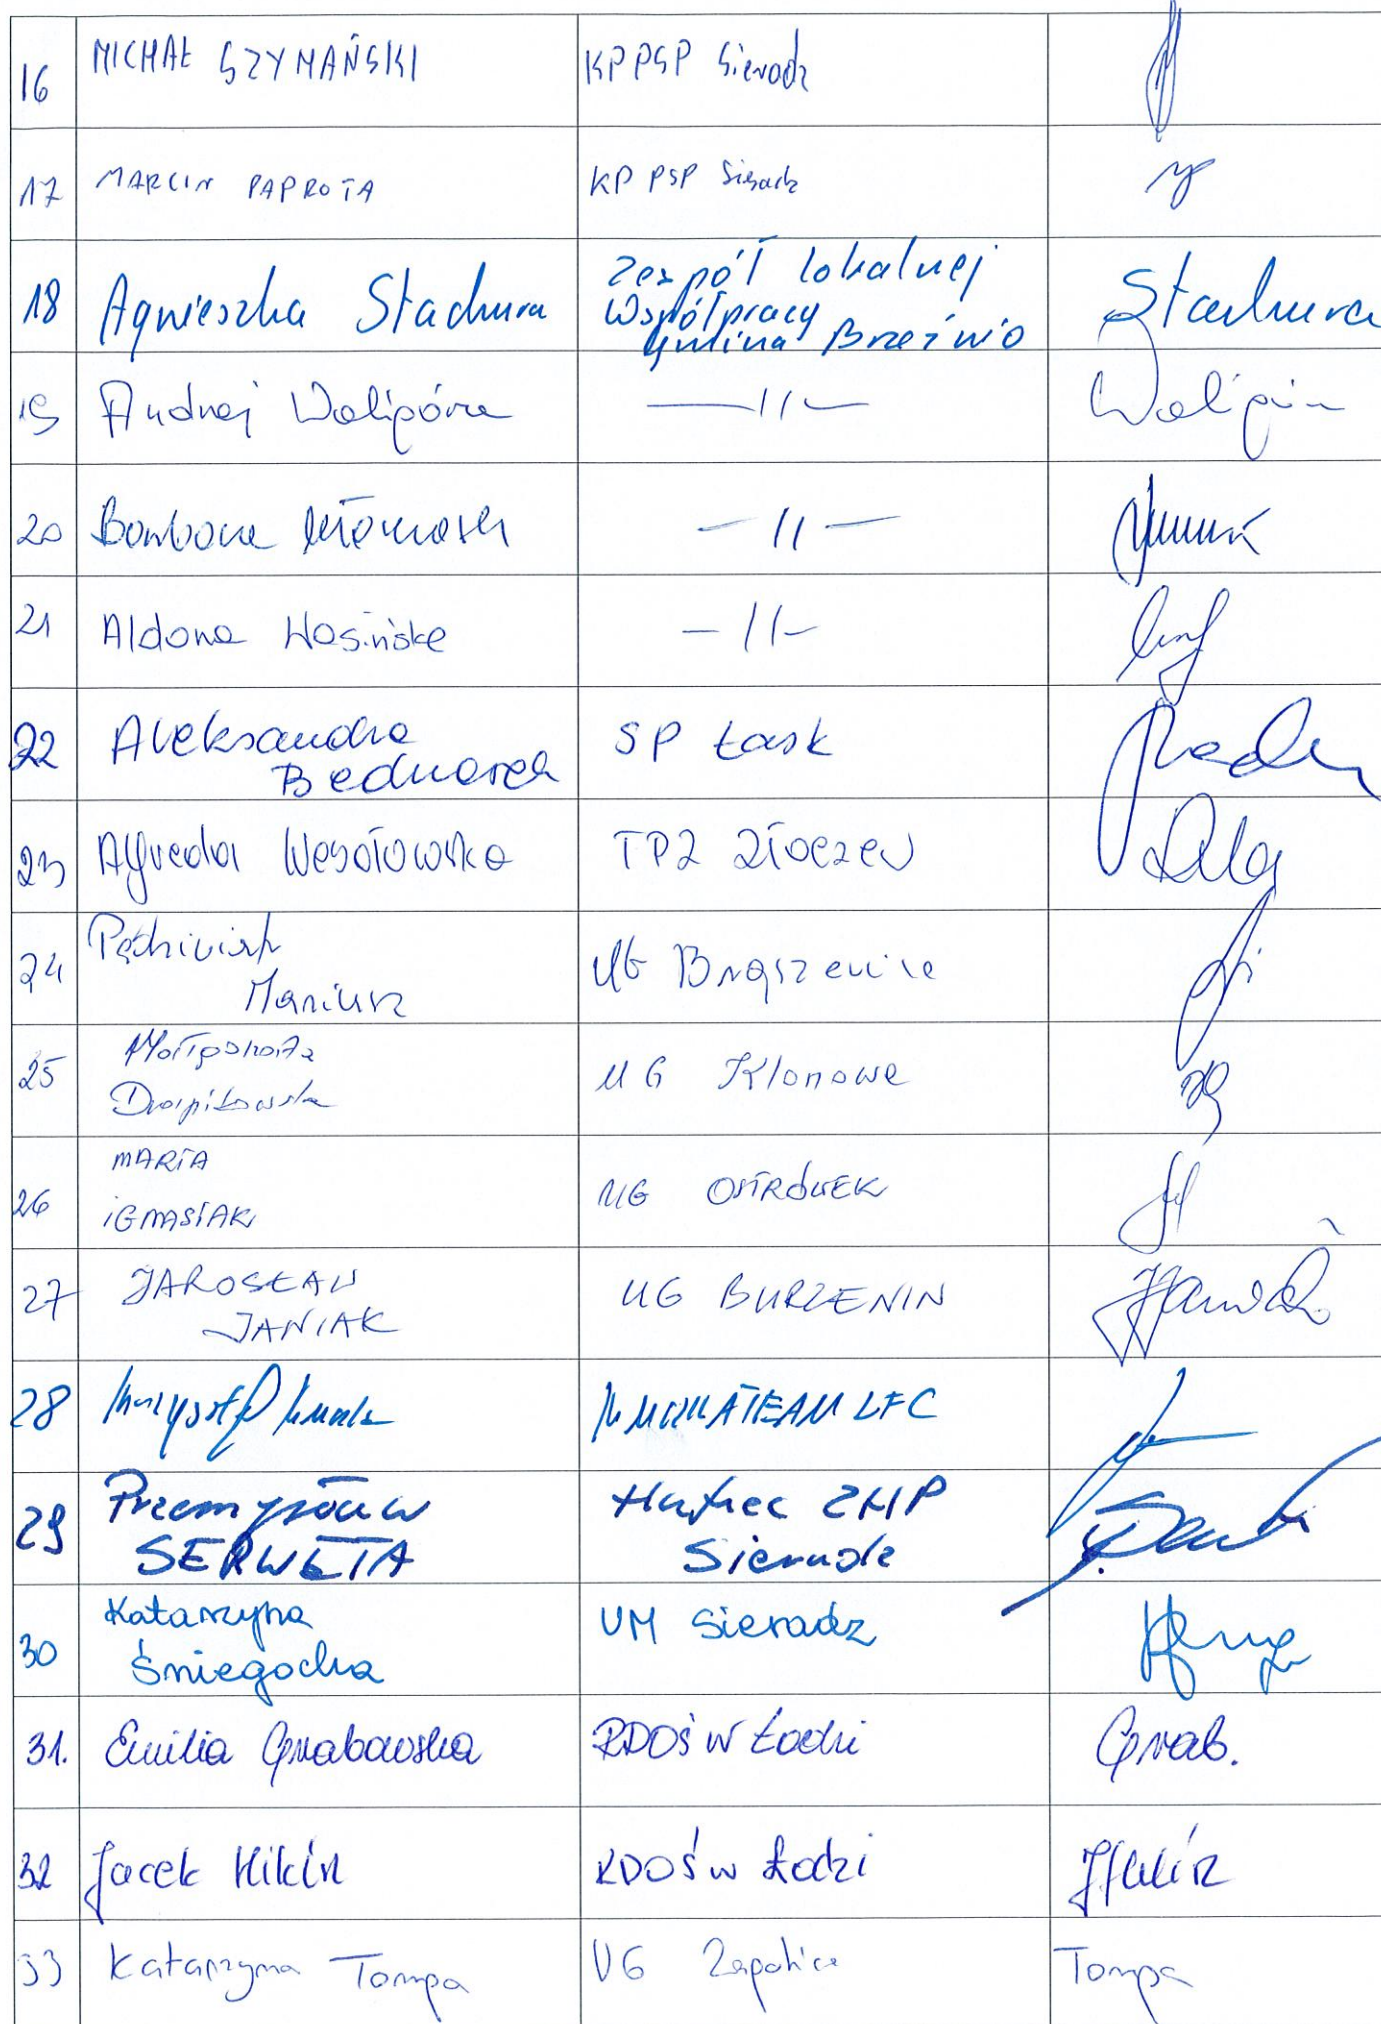 16 MICHAŁ SZYMAŃSKI KP PSP Sieradz
17 MARCIN PAPROTA KP PSP Sieradz
18 Agnieszka Stachura Zespół lokalnej
Współpracy
gmina Brzeźnio Stachura
19 Andrzej — 11 —
20 Barbara — 11 —
21 Aldona Wosińska — 11 —
22 Aleksandra
Bednarek SP Łask
23 Alfreda Wesołowska TPZ Złoczew
24 Pędziwiatr
Mariusz UG Brąszewice
25 Małgorzata
UG Klonowa
26 MARIA
IGNASIAK UG OSTRÓWEK
27 JAROSŁAW
JANIAK UG BURZENIN
28 Krzysztof TEAM LFC
29 Przemysław
SERWETA Hufiec ZHP
Sieradz
30 Katarzyna
Śniegocka UM Sieradz
31. Emilia Grabowska RDOŚ w Łodzi Grab.
32 Jacek RDOŚ w Łodzi
33 Katarzyna Tompa UG Zapolice Tompa